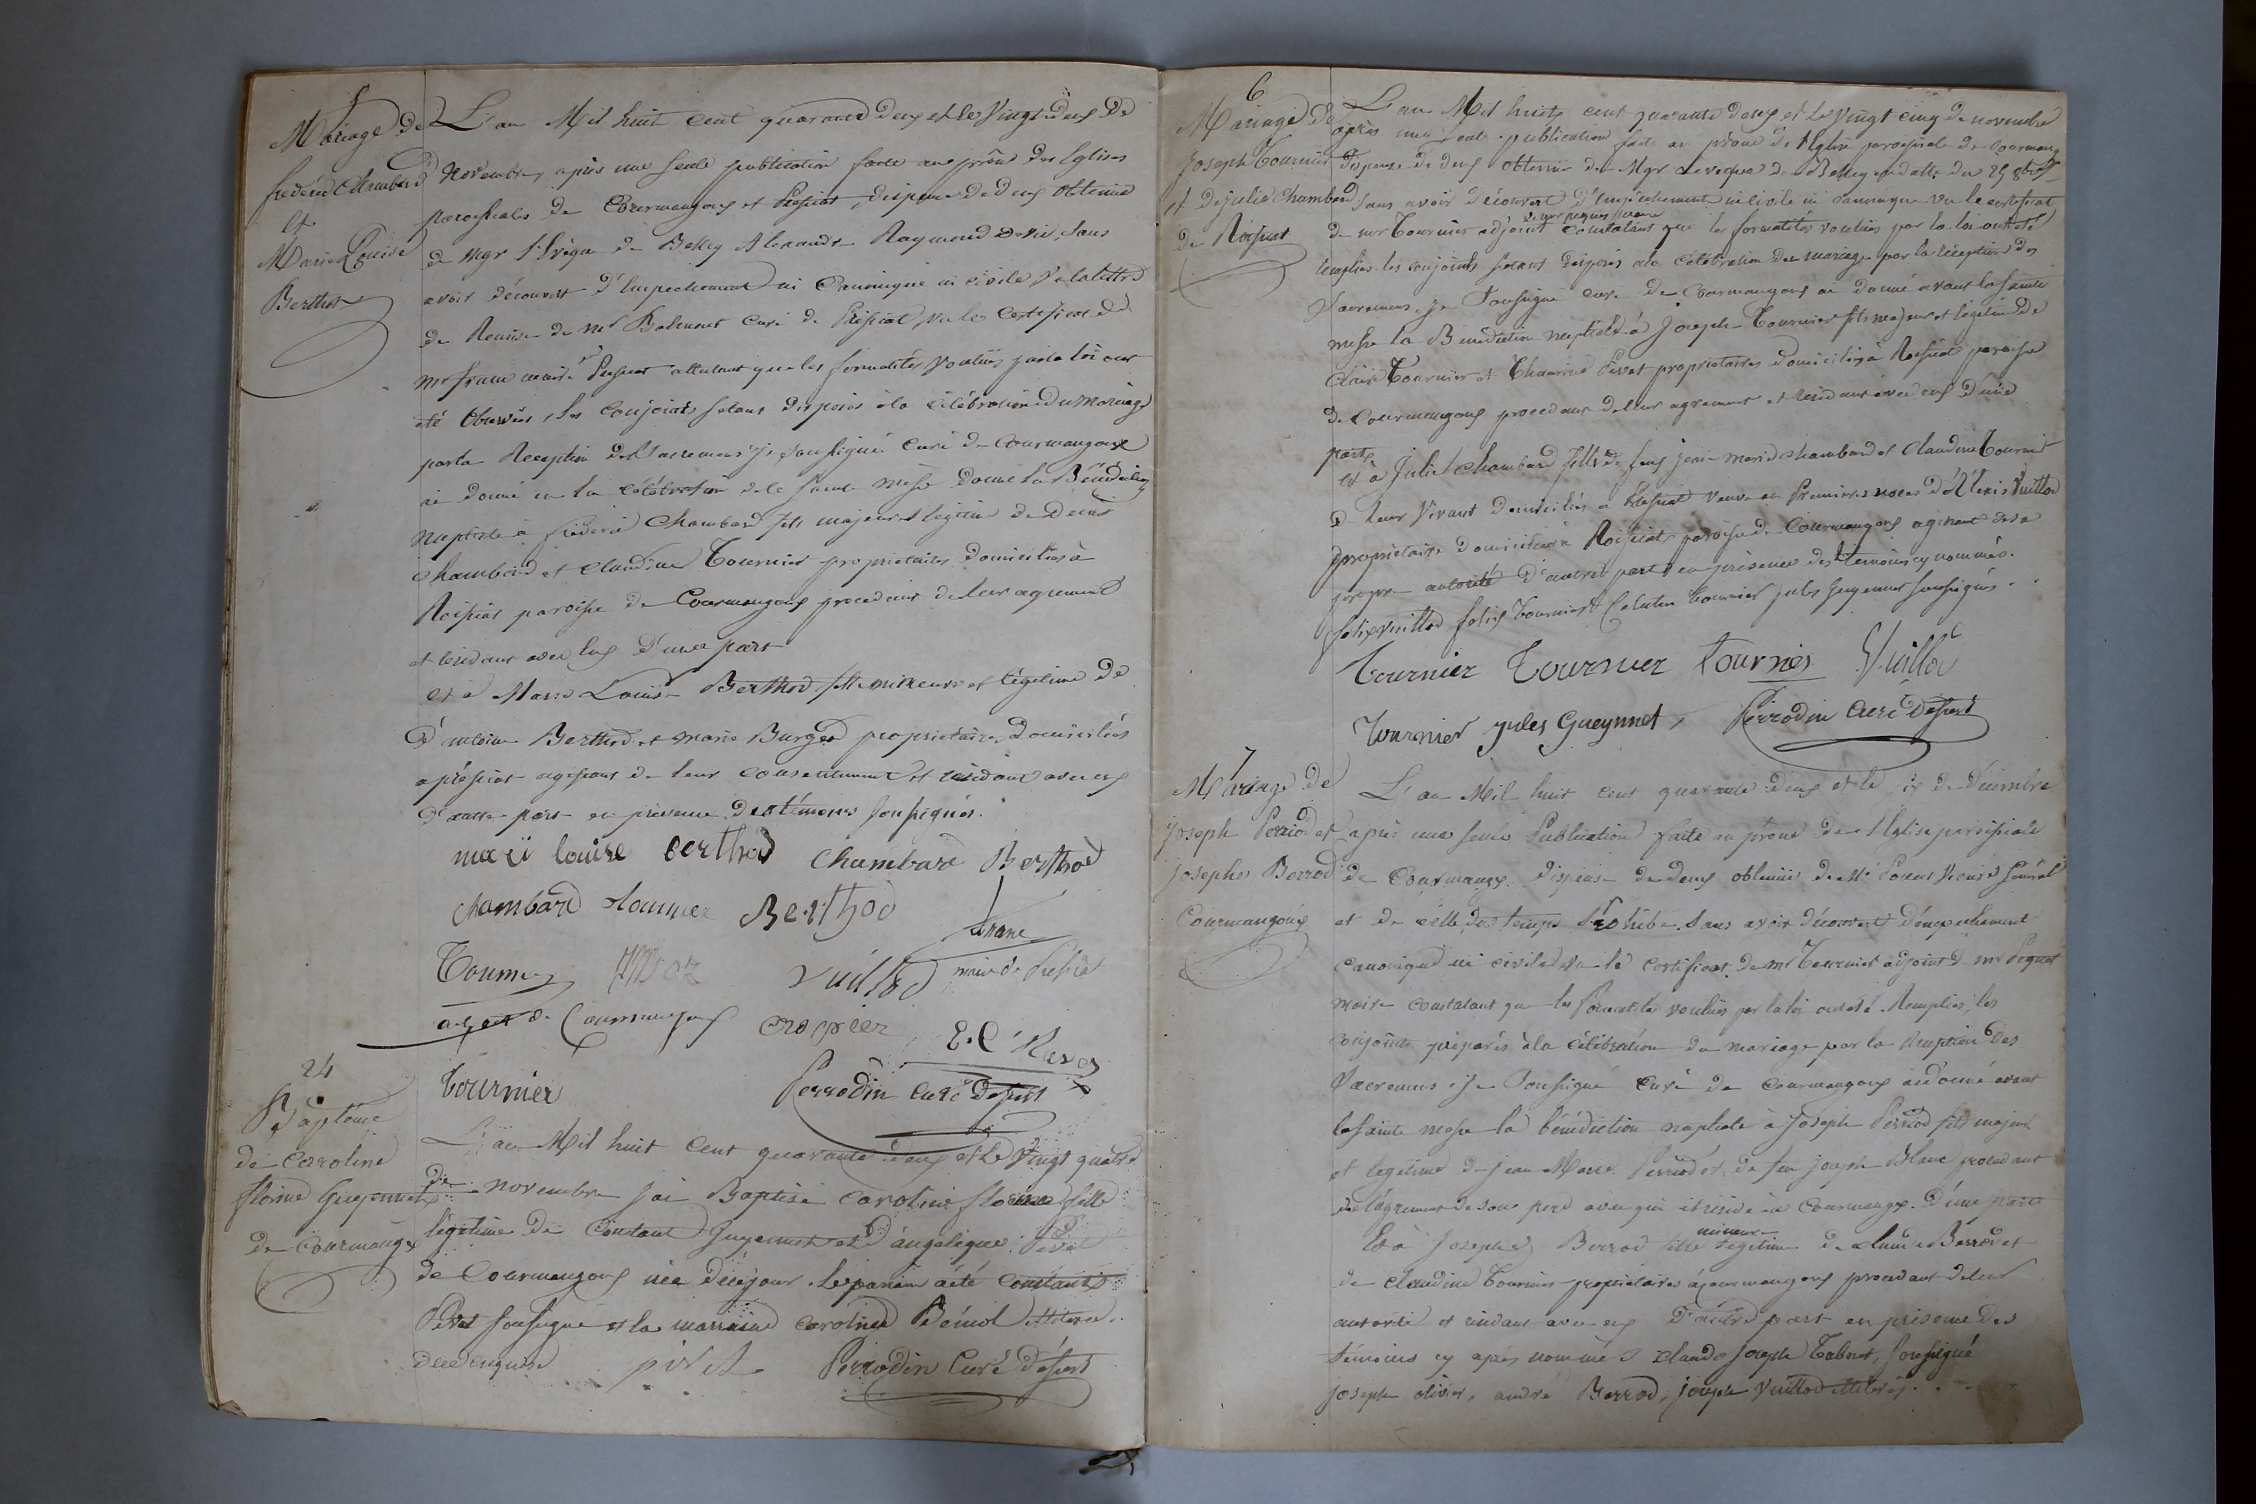 5
Mariage de
frédéric Chambard
et
Marie Louise
Berthod
L'an Mil huit cent quarante deux et le Vingt deux de
Novembre, après une seule publication faite aux prônes des Eglises
paroissiales de Courmangoux et Préssiat, dispense de deux obtenue
de Mgr l'Evêque de Belley Alexandre Raymond devie, Sans
avoir découvert d'Empechement ni Canonique ni civile Vu la lettre
de Remise de mr curé de Préssiat, vu les certificat de
mr franc maire de Pressiat attestant que les formalités Voulues par la loi ont
été observées, les conjoints s'étant disposés à la Célébration du Mariage
par la Réception des Sacremens, Je soussigné curé de Courmangoux
ai donné en la célébration de la sainte Messe donné la Bénédiction
Nuptiale à frédéric Chambard fils majeur et légitime de Denis
Chambard et Claudine Tournier propriétaires domiciliés à
Roissiat paroisse de Courmangoux procedant de leur agrement
et résidant avec eux d'une part
et à Marie Louise Berthod fille mineure et légitime de
Antoine Berthod et marie Burges propriétaires domiciliés
a préssiat agissant de leur consentement et résidant avec eux
d'autre part en présence des témoins soussignés.
marï louise berthod chambard Berthod
chambard tournier Berthod
franc
maire de Préssiat
Tournier Vuillod
adjoint de Courmangoux crospier
Tournier Perrodin curé desservt
24
Baptême
de Caroline
florine Gueynnet
de Courmangx
L'an Mil huit Cent quarante deux et le Vingt quatre
de novembre j'ai Baptisé Caroline florine fille
légitime de Constant Guyennet et d'angelique Pévet
de Courmangoux née dece jour. le parain a été Constant
Pévet soussigné et la marraine Caroline Bénoit illiterée
de ce enquise pivet Perrodin Curé déssert
6
Mariage de
Joseph Tournier
et de julie Chambard
de Roissiat
L'an Mil huit cent quarante deux et le Vingt cinq de novembre
après une seule publication faite au prône de l'Eglise paroissiale de Courmang
dispense de deux obtenue de Mgr Leveque de Belley en datte du 29 8bre
sans avoir découvert d'Empêchement ni civile ni canonique vu le certificat
de mr Tournier adjoint de mr piquet maire constatant que les formalités voulues par la loi ont été
remplies. les conjoints s'étant disposés à la célébration du mariage par la réception des
Sacremens, je soussigné curé de Courmangoux ai donné avant la sainte
messe la Bénédiction nuptiale à Joseph Tournier fils majeur et légitime de
Claude Tournier et Pévet propriétaires domiciliés à Roissiat paroisse
de Courmangoux procedant de leur agrement et résidant avec eux d'une
part,
et à Julie Chambard fille de feux jean marie chambard et Claudine Tournier
de leur Vivant domiciliés a Préssiat veuve en Premières noces d'Alexis Vuillod
propriétaire domiciliée à Roissiat paroisse de Courmangoux agissant de sa
propre autorité d'autre part en présence des témoins cy nommés.
felix vuillod felix Tournier Celestin Tournier jules Gueynnet soussignés.
Tournier Tournier Tournier Vuillod
Tournier jules Gueynnet, Perrodin Curé Dessert
7
Mariage de
Joseph Perriod et
Josephe Berrod
Courmangoux
L'an Mil huit cent quarante deux et le six de Décembre
après une seule Publication faite au prône de l'Eglise paroissiale
de Courmangx. dispense de deux obtenue de Mr Vicaire Général
et de celle du temps Prohibé. Sans avoir découvert d'empêchement
canonique ni civile vu le certificat de mr Tournier adjoint de mr Piquet
maire constatant que les formalités voulues par la loi ont été Remplies, les
conjoints préparés à la célébration du mariage par la Réception des
Sacremens. je soussigné curé de Courmangoux ai donné avant
la sainte messe la bénédiction nuptiale à Joseph Perriod fils majeur
et légitime de jean Marie Perriod et de feu joseph Blanc procedant
de l'agrement de son père avec qui il réside à Courmangx. D'une part
Et à Josephe Berrod fille mineure légitime de claude Berrod et
de claudine Tournier propriétaires à Courmangoux procedant de leur
autorité et résidant avec eux D'autre part en présence des
témoins cy après nommés claude Joseph Tabouret, soussigné
joseph olivier, andré Berrod, joseph Vuillod illiterés.